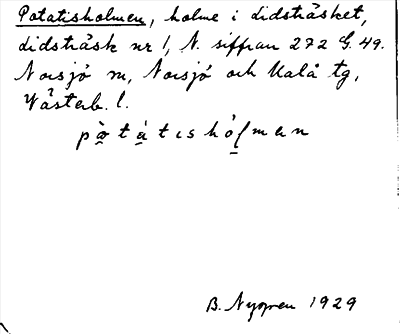 Potatisholmen, holme i didsträsket,
didsträsk nr 1, N. siffran 272 G. 49.
Norsjö sn, Norsjö och Malå tg,
Västerb. l.
pòtátishólmen
B. Nygren 1929